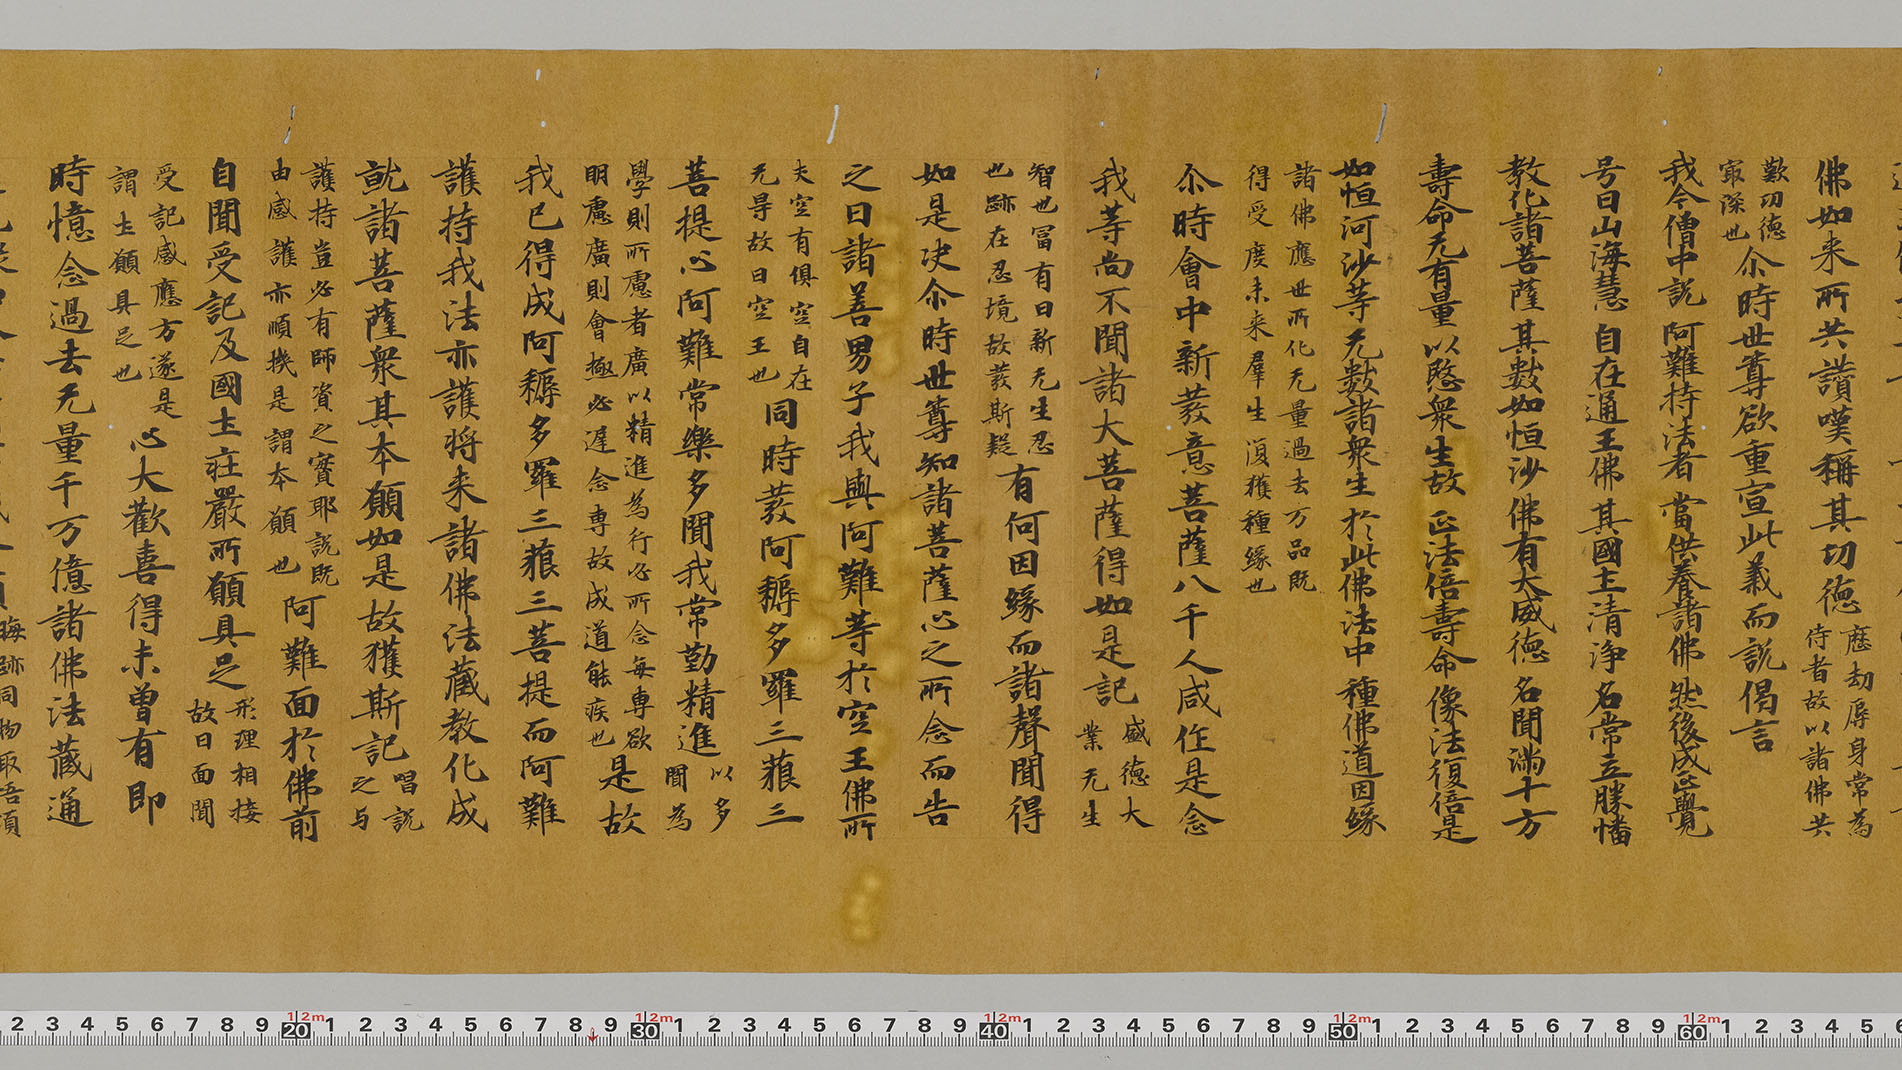 佛如来所共讃嘆稱其功德
歴劫辱身常為
侍者故以諸佛共
歎功德
冣深也
尒時世尊欲重宣此義而說偈言
我今僧中說 阿難持法者 當供養諸佛 然後成正覺
号曰山海慧 自在通王佛 其國土清淨 名常立勝幡
教化諸菩薩 其數如恒沙 佛有大威德 名聞滿十方
壽命无有量 以愍衆生故 正法倍壽命 像法復倍是
如恒河沙等 无數諸衆生 於此佛法中 種佛道因緣
諸佛應世所化无量過去万品既
得受度未来羣生復獲種緣也
尒時會中新發意菩薩八千人咸作是念
我等尚不聞諸大菩薩得如是記
盛德大
業无生
智也冨有日新无生忍
也跡在忍境故發斯疑
有何因緣而諸聲聞得
如是决尒時世尊知諸菩薩心之所念而告
之曰諸善男子我與阿難等於空王佛所
夫空有俱空自在
无㝵故曰空王也
同時發阿耨多羅三藐三
菩提心阿難常樂多聞我常勤精進
以多
聞為
學則所慮者廣以精進為行必所念每専欲
明慮廣則會極必遲念専故成道能疾也
是故
我已得成阿耨多羅三藐三菩提而阿難
護持我法亦護将来諸佛法藏教化成
就諸菩薩衆其本願如是故獲斯記
唱說
之与
護持豈必有師資之實耶說既
由感護亦順機是謂本願也
阿難面於佛前
自聞受記及國土莊嚴所願具足
形理相接
故曰面聞
受記感應方遂是
謂土願具足也
心大歡喜得未曾有即
時憶念過去无量千万億諸佛法藏通